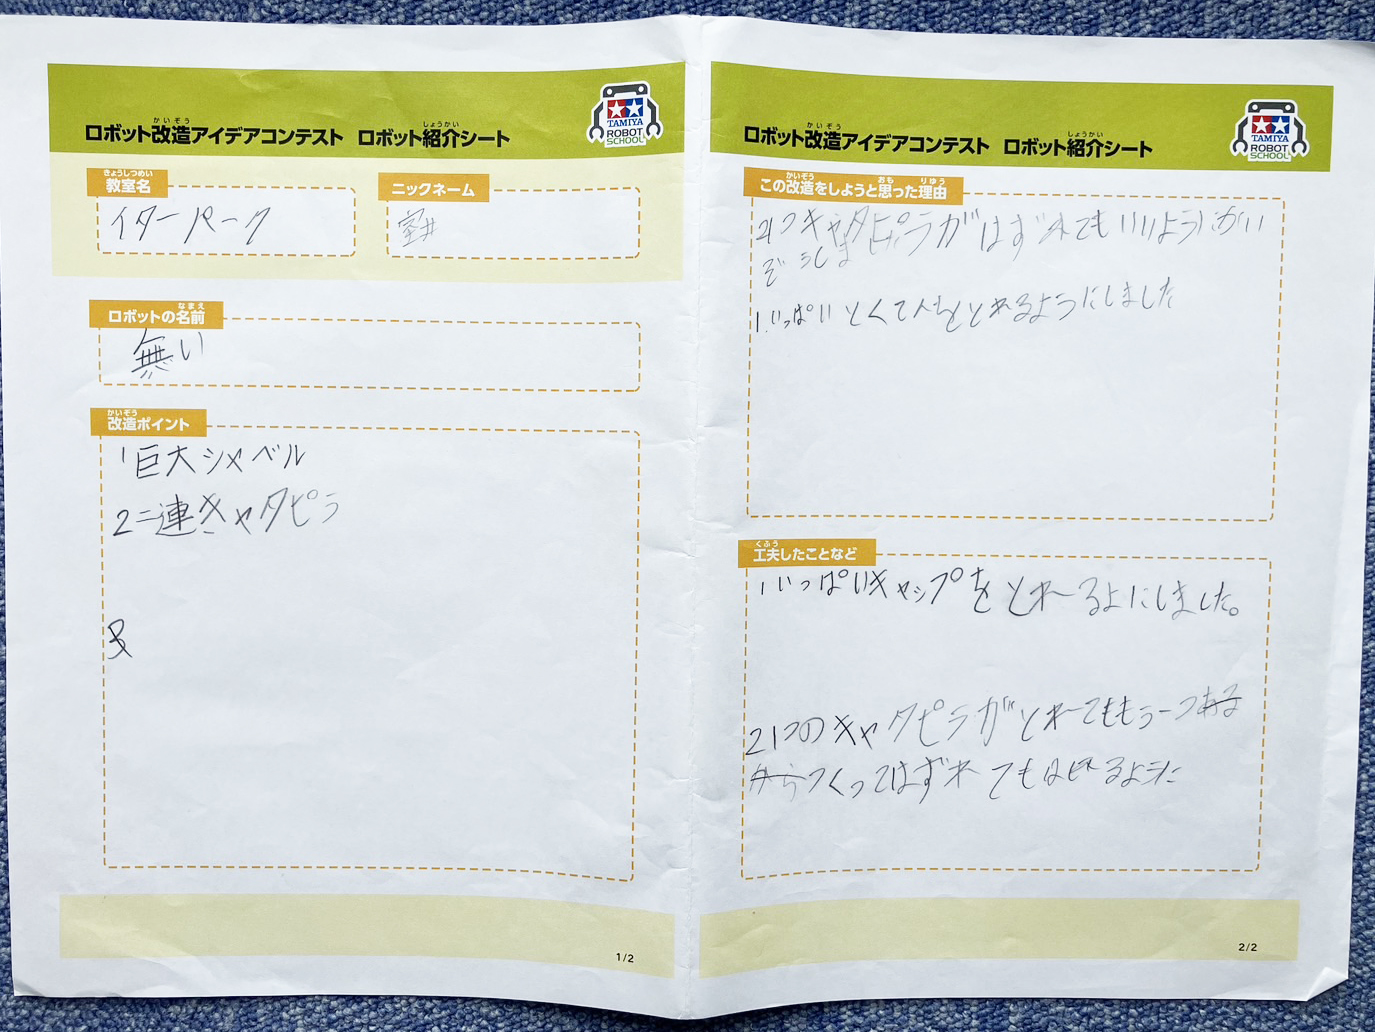 ロボット改造アイデアコンテスト ロボット紹介シート
かいぞう しょうかい
TAMIYA
ROBOT
SCHOOL
きょうしつめい
教室名
イターパーク
ニックネーム
なまえ
ロボットの名前
無い
かいぞう
改造ポイント
1巨大シャベル
2二連キャタピラ
1/2
ロボット改造アイデアコンテスト ロボット紹介シート
かいぞう しょうかい
TAMIYA
ROBOT
SCHOOL
かいぞう おも りゆう
この改造をしようと思った理由
21つキャタピラがはずれてもいいようにかい
ぞうしま
1.いっぱい とくてんをとれるようにしました
くふう
工夫したことなど
1いっぱいキャップをとれーるよにしました。
21つのキャタピラがとれてももう一つある
からつくってはずれてもはしれるように
2/2